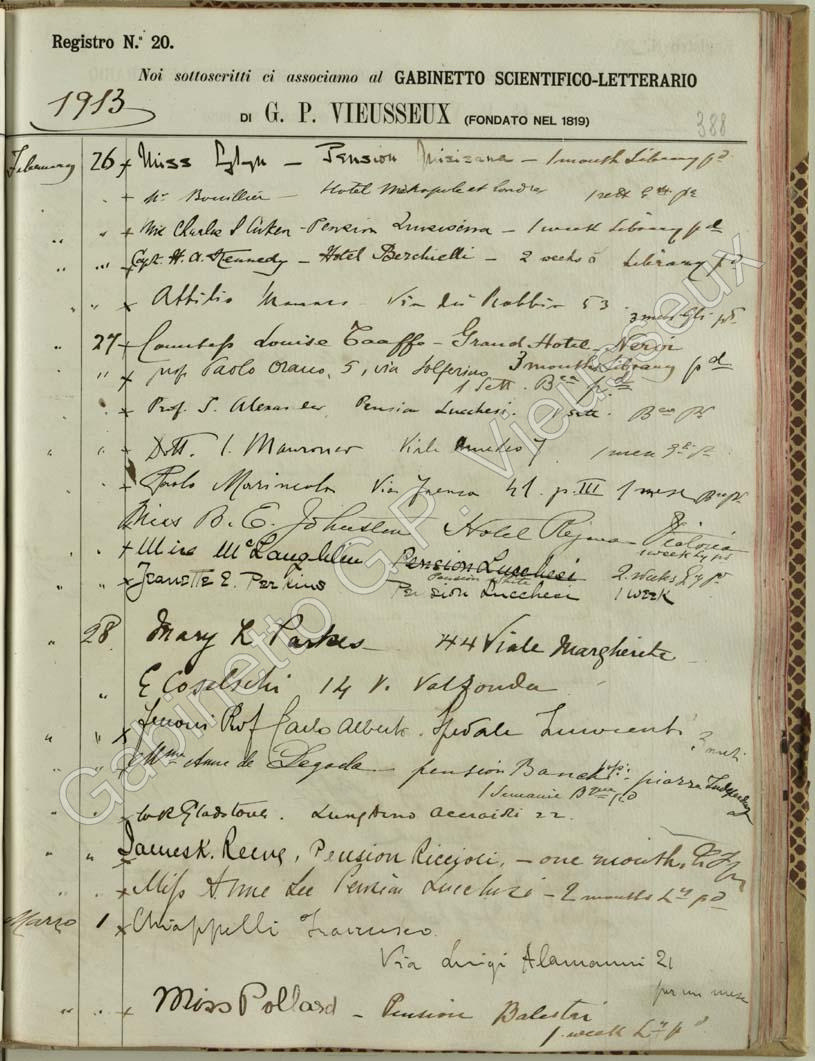 Registro N.° 20.
Noi sottoscritti ci associamo al GABINETTO SCIENTIFICO-LETTERARIO
1913
DI G. P. VIEUSSEUX (FONDATO NEL 1819)
388
February 26 x Miss – Pension – 1 month Library pd
" x Bouillier – Hotel Metropole et Londres
" " x Charles S Aiken – Pension – 1 week Library pd
" " x Capt. H. A. Kennedy – Hotel Berchielli – 2 weeks Library pd
" " x Attilio – Via dei Robbia 53
" 27 x Countess Louise Taaffe – Grand Hotel Nervi
3 months Library pd
" x prof Paolo Orano, 5, via Solferino
1 Sett. pd
x Prof. S. Alexander Pension Lucchesi. 1 sett.
x Dott. Viale Amedeo 7 1 mese
x Paolo Marincola Via Faenza 41. p. III 1 mese
Miss B. E. Johnston Hotel Regina Victoria
1 week Ly pd
" x Miss McLaughlin Pension Lucchesi 2 weeks Ly pd
Pension White
" " x Jeanette E. Perkins Pension Lucchesi 1 week
" 28 Mary L Parkes 44 Viale Margherita
E Coselschi 14 V. Valfonda
" " x Prof Carlo Alberto. Spedale Innocenti
3 mesi
" x Mme Anne de – pension piazza Indipendenza
1 Semaine pd
" x Gladstone. Lung'Arno Acciaioli 22.
" " James K. Reeve, Pension Piccioli, – one month,
" x Miss Anne Lee Pension Lucchesi – 2 months Ly pd
Marzo 1 x Chiappelli Francesco
Via Luigi Alamanni 21
per un mese
" " x Miss Pollard – Pension Balestri
1 week Ly pd
Gabinetto G.P. Vieusseux